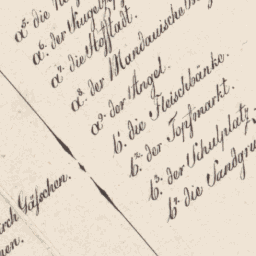 a⁵. die
a⁶. der Kugel
a⁷. die Hofstadt.
a⁸. der Mandauische
a⁹. der Angel.
b¹. die Fleischbänke.
b². der Topfmarkt.
b³. der Schulplatz.
b⁴. die Sandgru
Gäſschen.